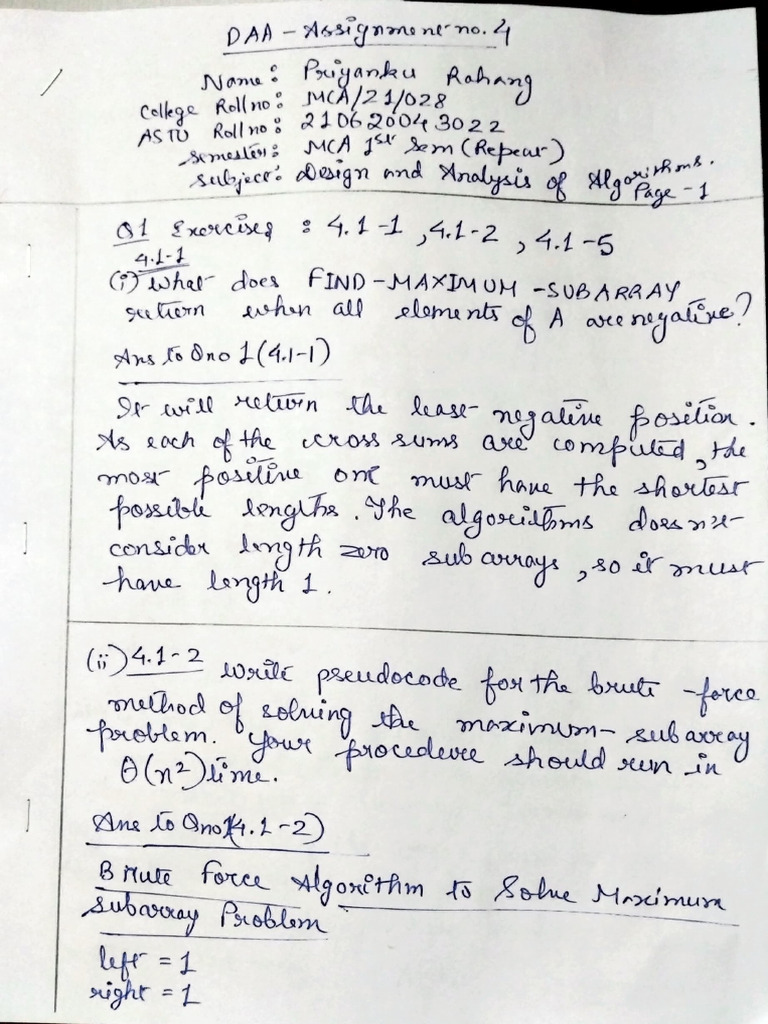 DAA - Assignment no. 4
Name: Priyanku Rahang
College Roll no: MCA/21/028
ASTU Roll no: 210620043022
Semester: MCA 1st Sem (Repeat)
Subject: Design and Analysis of Algorithms.
Page - 1
Q1 Exercises : 4.1-1, 4.1-2, 4.1-5
4.1-1
(i) What does FIND-MAXIMUM-SUBARRAY
return when all elements of A are negative?
Ans to Qno 1 (4.1-1)
It will return the least negative position.
As each of the cross sums are computed, the
most positive one must have the shortest
possible lengths. The algorithms doesn't
consider length zero sub arrays, so it must
have length 1.
(ii) 4.1-2 Write pseudocode for the brute-force
method of solving the maximum-subarray
problem. Your procedure should run in
θ(n²) time.
Ans to Qno 1(4.1-2)
Brute Force Algorithm to Solve Maximum
Subarray Problem
left = 1
right = 1